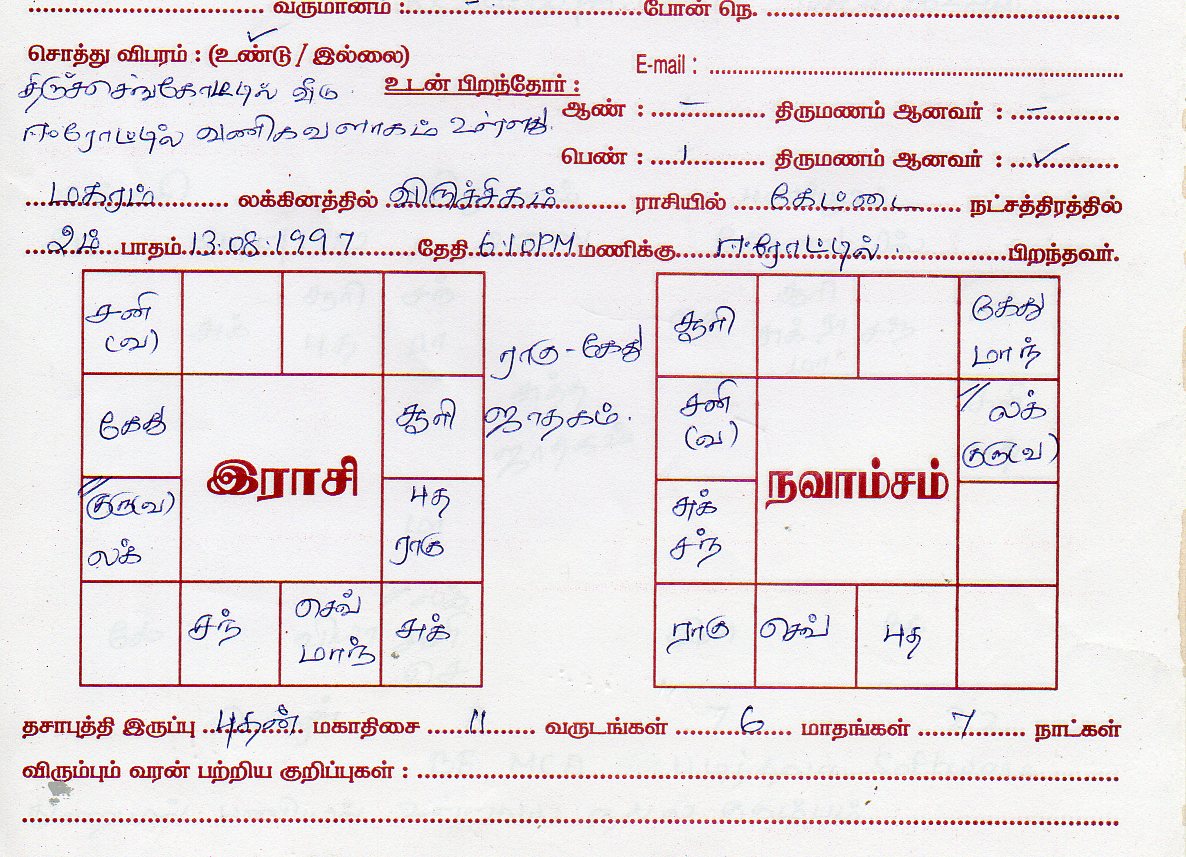 வருமானம் : – போன் நெ.
சொத்து விபரம் : (உண்டு / இல்லை) ✓
E-mail :
திருச்செங்கோட்டில் வீடு. உடன் பிறந்தோர் :
ஆண் : – திருமணம் ஆனவர் : –
ஈரோட்டில் வணிகவளாகம் உள்ளது.
பெண் : 1 திருமணம் ஆனவர் : ✓
மகரம் லக்கினத்தில் விருச்சிகம் ராசியில் கேட்டை நட்சத்திரத்தில்
2ம் பாதம் 13.08.1997 தேதி 6.10PM மணிக்கு ஈரோட்டில் பிறந்தவர்.
சனி
(வ)
கேது
சூரி
குரு(வ)
லக்
புத
ராகு
சந்
செவ்
மாந்
சுக்
இராசி
ராகு - கேது
ஜாதகம்.
சூரி
கேது
மாந்
சனி
(வ)
லக்
குரு(வ)
சுக்
சந்
ராகு
செவ்
புத
நவாம்சம்
தசாபுத்தி இருப்பு புதன் மகாதிசை 11 வருடங்கள் 6 மாதங்கள் 7 நாட்கள்
விரும்பும் வரன் பற்றிய குறிப்புகள் :